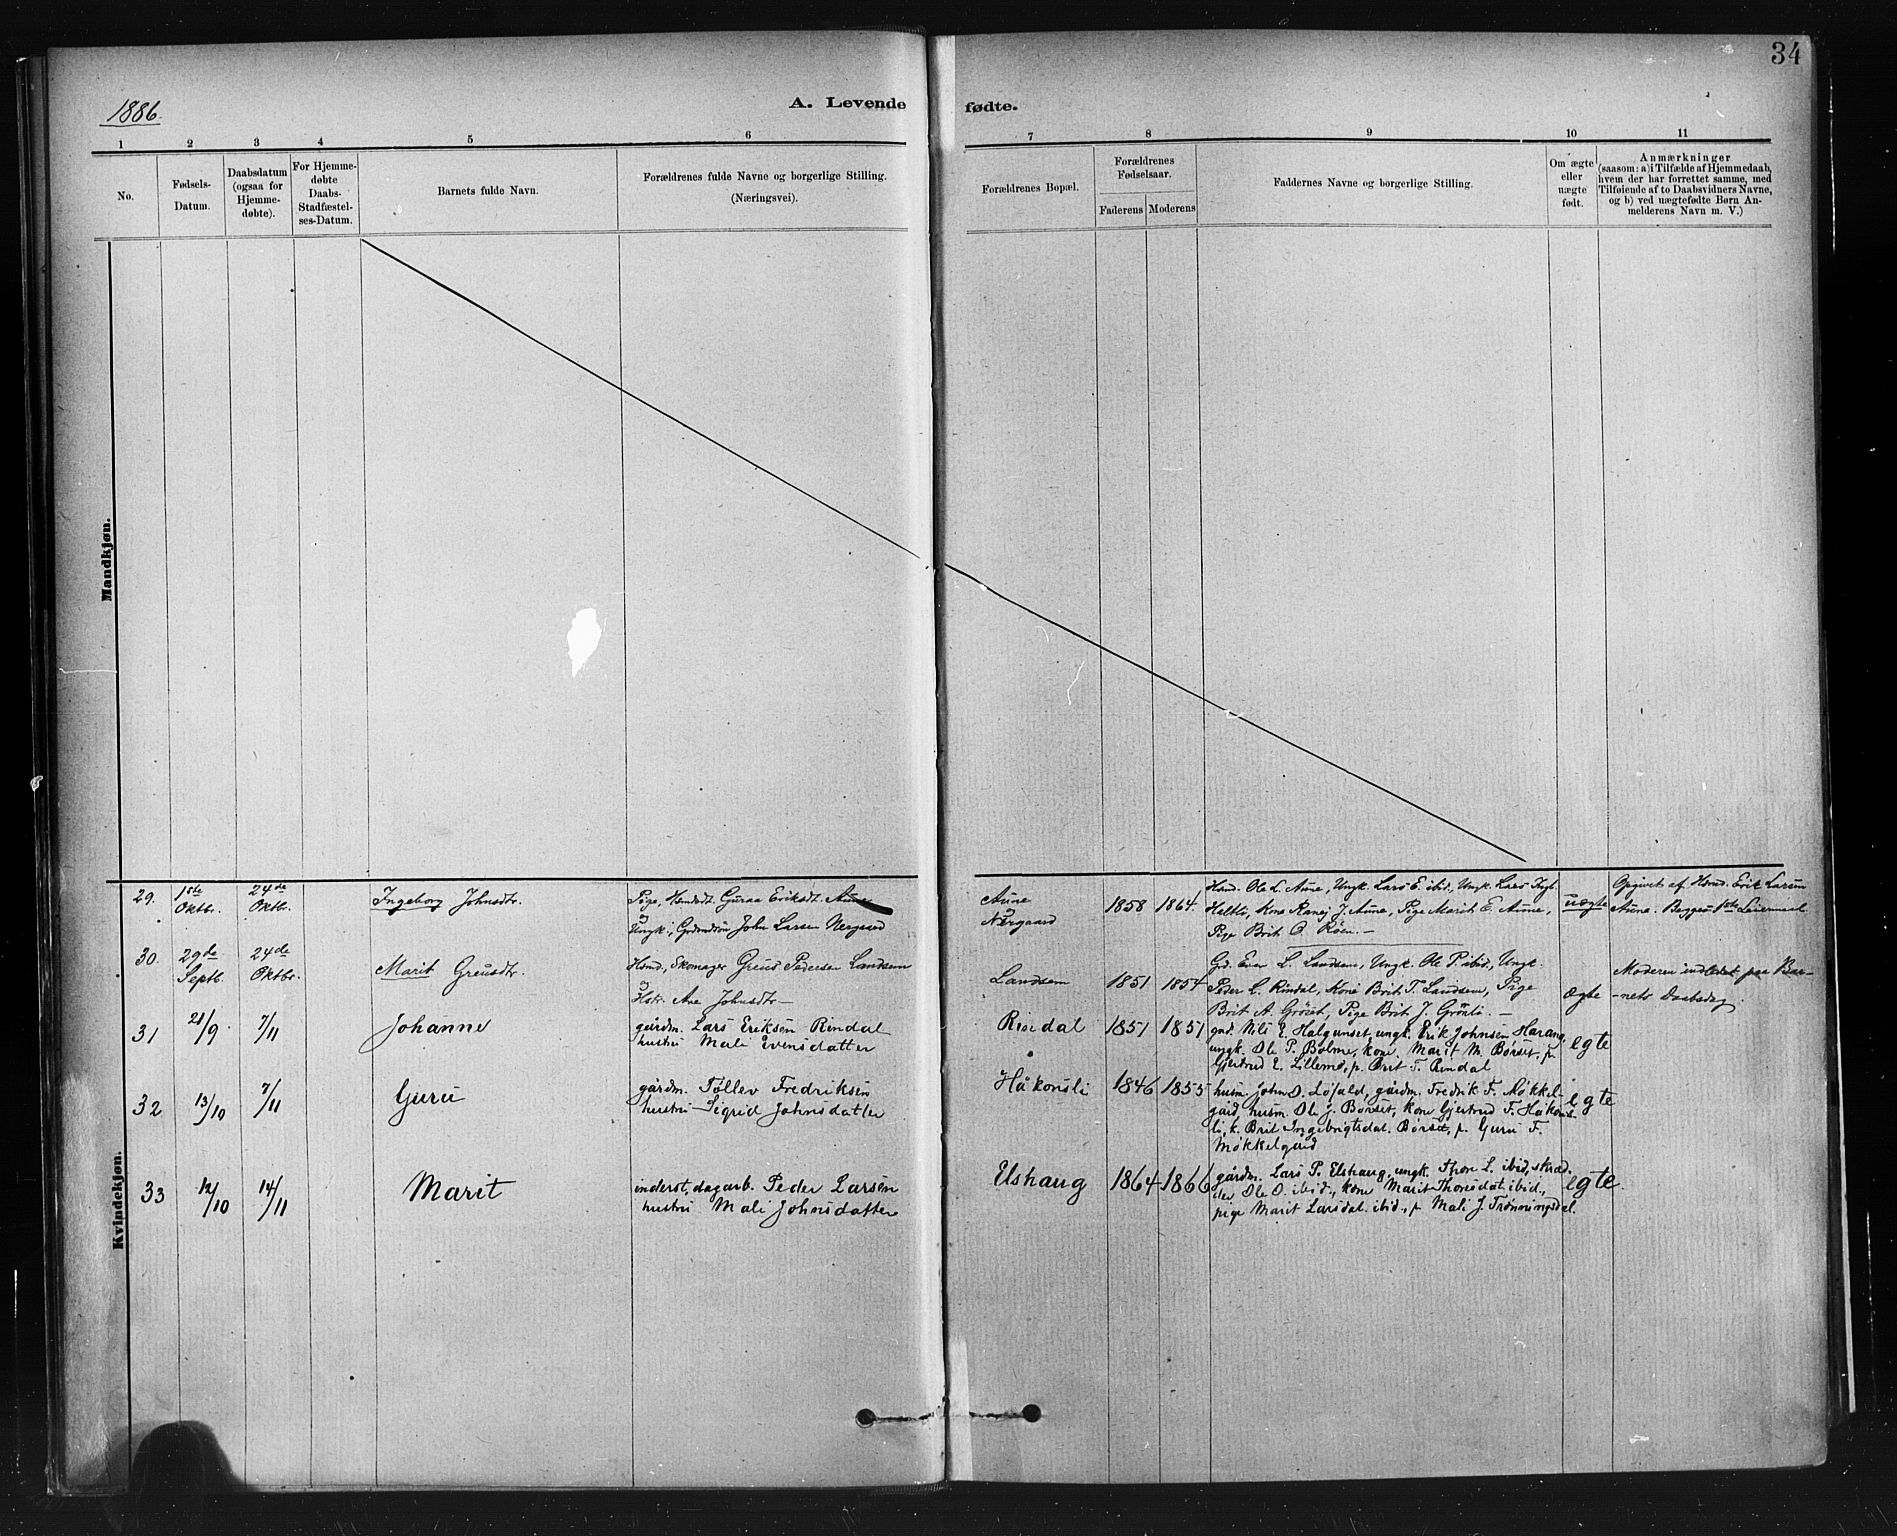 34
1886.
A. Levende fødte.
1 2 3 4 5 6 7 8 9 10 11
No.
Fødsels-
Datum.
Daabsdatum
(ogsaa for
Hjemme-
døbte).
For Hjemme-
døbte
Daabs-
Stadfæstel-
ses-Datum.
Barnets fulde Navn.
Forældrenes fulde Navne og borgerlige Stilling.
(Næringsvei).
Forældrenes Bopæl.
Forældrenes
Fødselsaar.
Faderens Moderens
Faddernes Navne og borgerlige Stilling.
Om ægte
eller
uægte
født.
Anmærkninger
(saasom: a) i Tilfælde af Hjemmedaab,
hvem der har forrettet samme, med
Tilføiende af to Daabsvidners Navne,
og b) ved uægtefødte Børn An-
melderens Navn m. V.)
Mandkjøn.
Kvindekjøn.
29.
1ste
Oktbr.
24de
Oktbr.
Ingeborg Johnsdtr.
Pige, Guraa Eriksdt. Aune
Ungk., John Larsen Nergaard
Aune
Nergaard
1858 1864.
Hsmd. Ole L. Aune, Ungk. Lars E. ibid, Ungk. Lars
Kone Ranej J. Aune, Pige Marit E. Aune,
Pige Brit O. Røen. —
uægte
Opgivet af Hsmd. Erik Larsen
Aune. Begges 1ste Leiermaal
30.
29de
Septb.
24de
Oktbr.
Marit Greusdtr.
Hsmd, Skomager Greus Pedersen Landsem
Hstr. Ane Johnsdtr —
Landsem
1851 1854
Grd. Even L. Landsem, Ungk. Ole P. ibid, Ungk.
Peder L. Rindal, Kone Brit T. Landsem, Pige
Brit A. Grøset, Pige Brit J. Grønli. —
Ægte
Moderen indledet paa Bar-
nets Daabsdag.
31
21/9.
7/11
Johanne
gårdm. Lars Eriksen Rindal
hustru Mali Evensdatter
Rindal
1851 1851
grd. Nils E. Halgunset, ungk. Erik Johnsen Harang,
ungk. Ole P. Bolme, kone Marit M. Børset, p.
Gjertrud E. Lillemo, p. Brit T. Rindal
egte
32
13/10
7/11
Guru
gårdm. Tøllev Fredriksen
hustru Sigrid Johnsdatter
Håkonsli
1846 1855
husm. John O. Løfald, gårdm. Fredrik F. Møkkel-
gård, husm. Ole J. Børset, kone Gjertrud F. Håkons-
li, k. Brit Ingebrigtsdat. Børset, p. Guru F.
Møkkelgård
egte
33
12/10
14/11
Marit
inderst, dagarb. Peder Larsen
hustru Mali Johnsdatter
Elshaug
1864 1866
gårdm. Lars P. Elshaug, ungk. Thore L. ibid, skræd-
der Ole O. ibid., kone Marit Thoresdat. ibid.,
pige Marit Larsdat. ibid., p. Mali J. Trønningsdal.
egte.